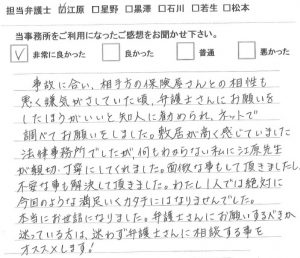 担当弁護士 ☑江原 □星野 □黒澤 □石川 □若生 □松本
当事務所をご利用になったご感想をお聞かせ下さい。
✓ 非常に良かった □ 良かった □ 普通 □ 悪かった
事故に合い、相手方の保険屋さんとの相性も
悪く嫌気がさしていた頃、弁護士さんにお願いを
したほうがいいと知人に勧められ、ネットで
調べてお願いをしました。敷居が高く感じていました
法律事務所でしたが、何もわからない私に江原先生
が親切、丁寧にしてくれました。面倒な事もして頂きましたし、
不安な事も解決して頂きました。わたし1人では絶対に
今回のような満足いくカタチにはなりませんでした。
本当にお世話になりました。弁護士さんにお願いするべきか
迷っている方は、迷わず弁護士さんに相談する事を
オススメします!